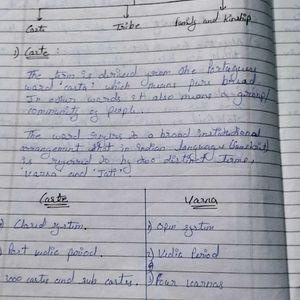 Caste Tribe Family and Kinship
1) Caste :
The term is derived from the Portuguese
word 'casta' which means pure breed
In other words it also means a group/
community of people.
The word refers to a broad institutional
arrangement that in Indian language (Sanskrit)
is referred to by two distinct terms,
Varna and 'Jati'.
Caste Varna
Closed system. 1) Open system
Post vedic period. 2) Vedic Period
3000 castes and sub castes. 3) Four varnas